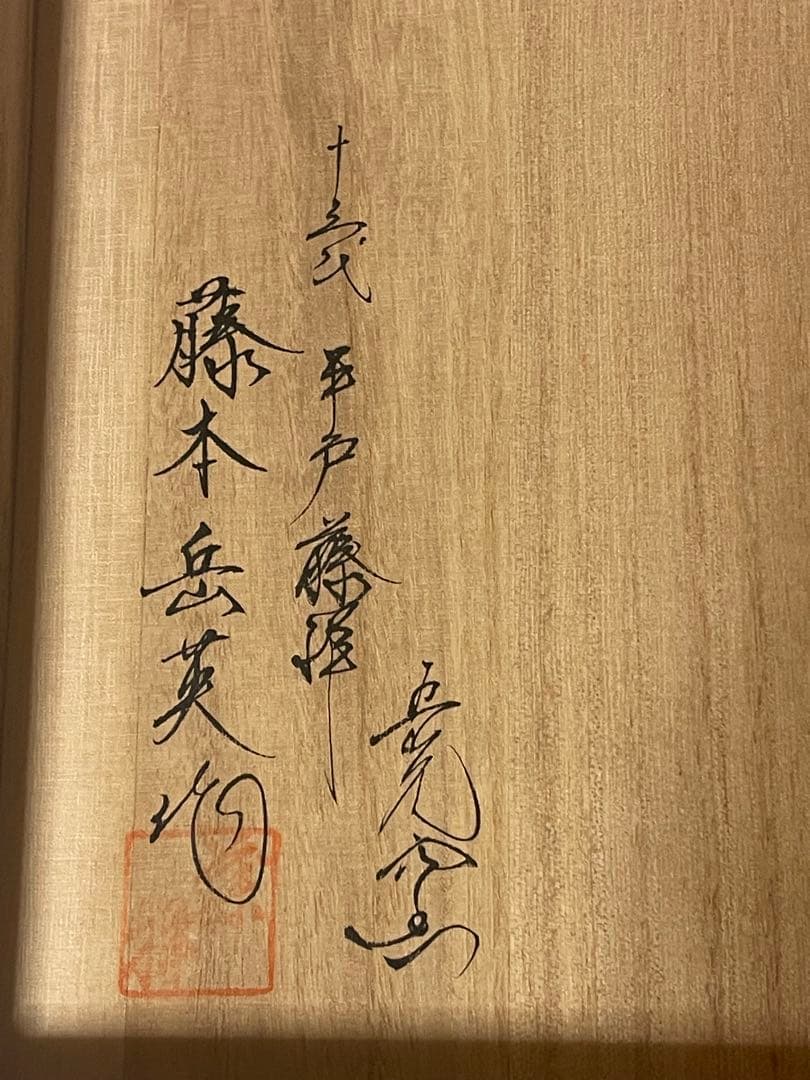 五光窯
十三代 平戸藤祥
藤本岳英作